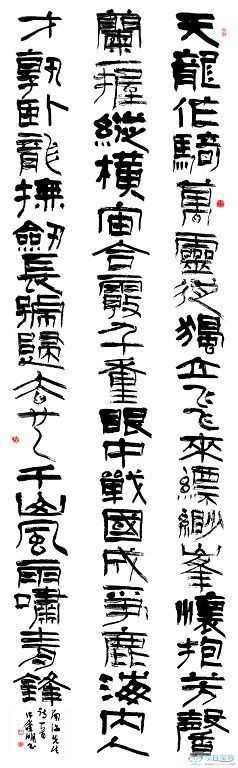 天龍作騎萬靈從獨立飛來縹緲峯懷抱芳馨
蘭一握縱橫宙合霧千重眼中戰國成爭鹿海内人
才孰臥龍撫劍長號歸去也千山風雨嘯青鋒
南海先生
詩一首